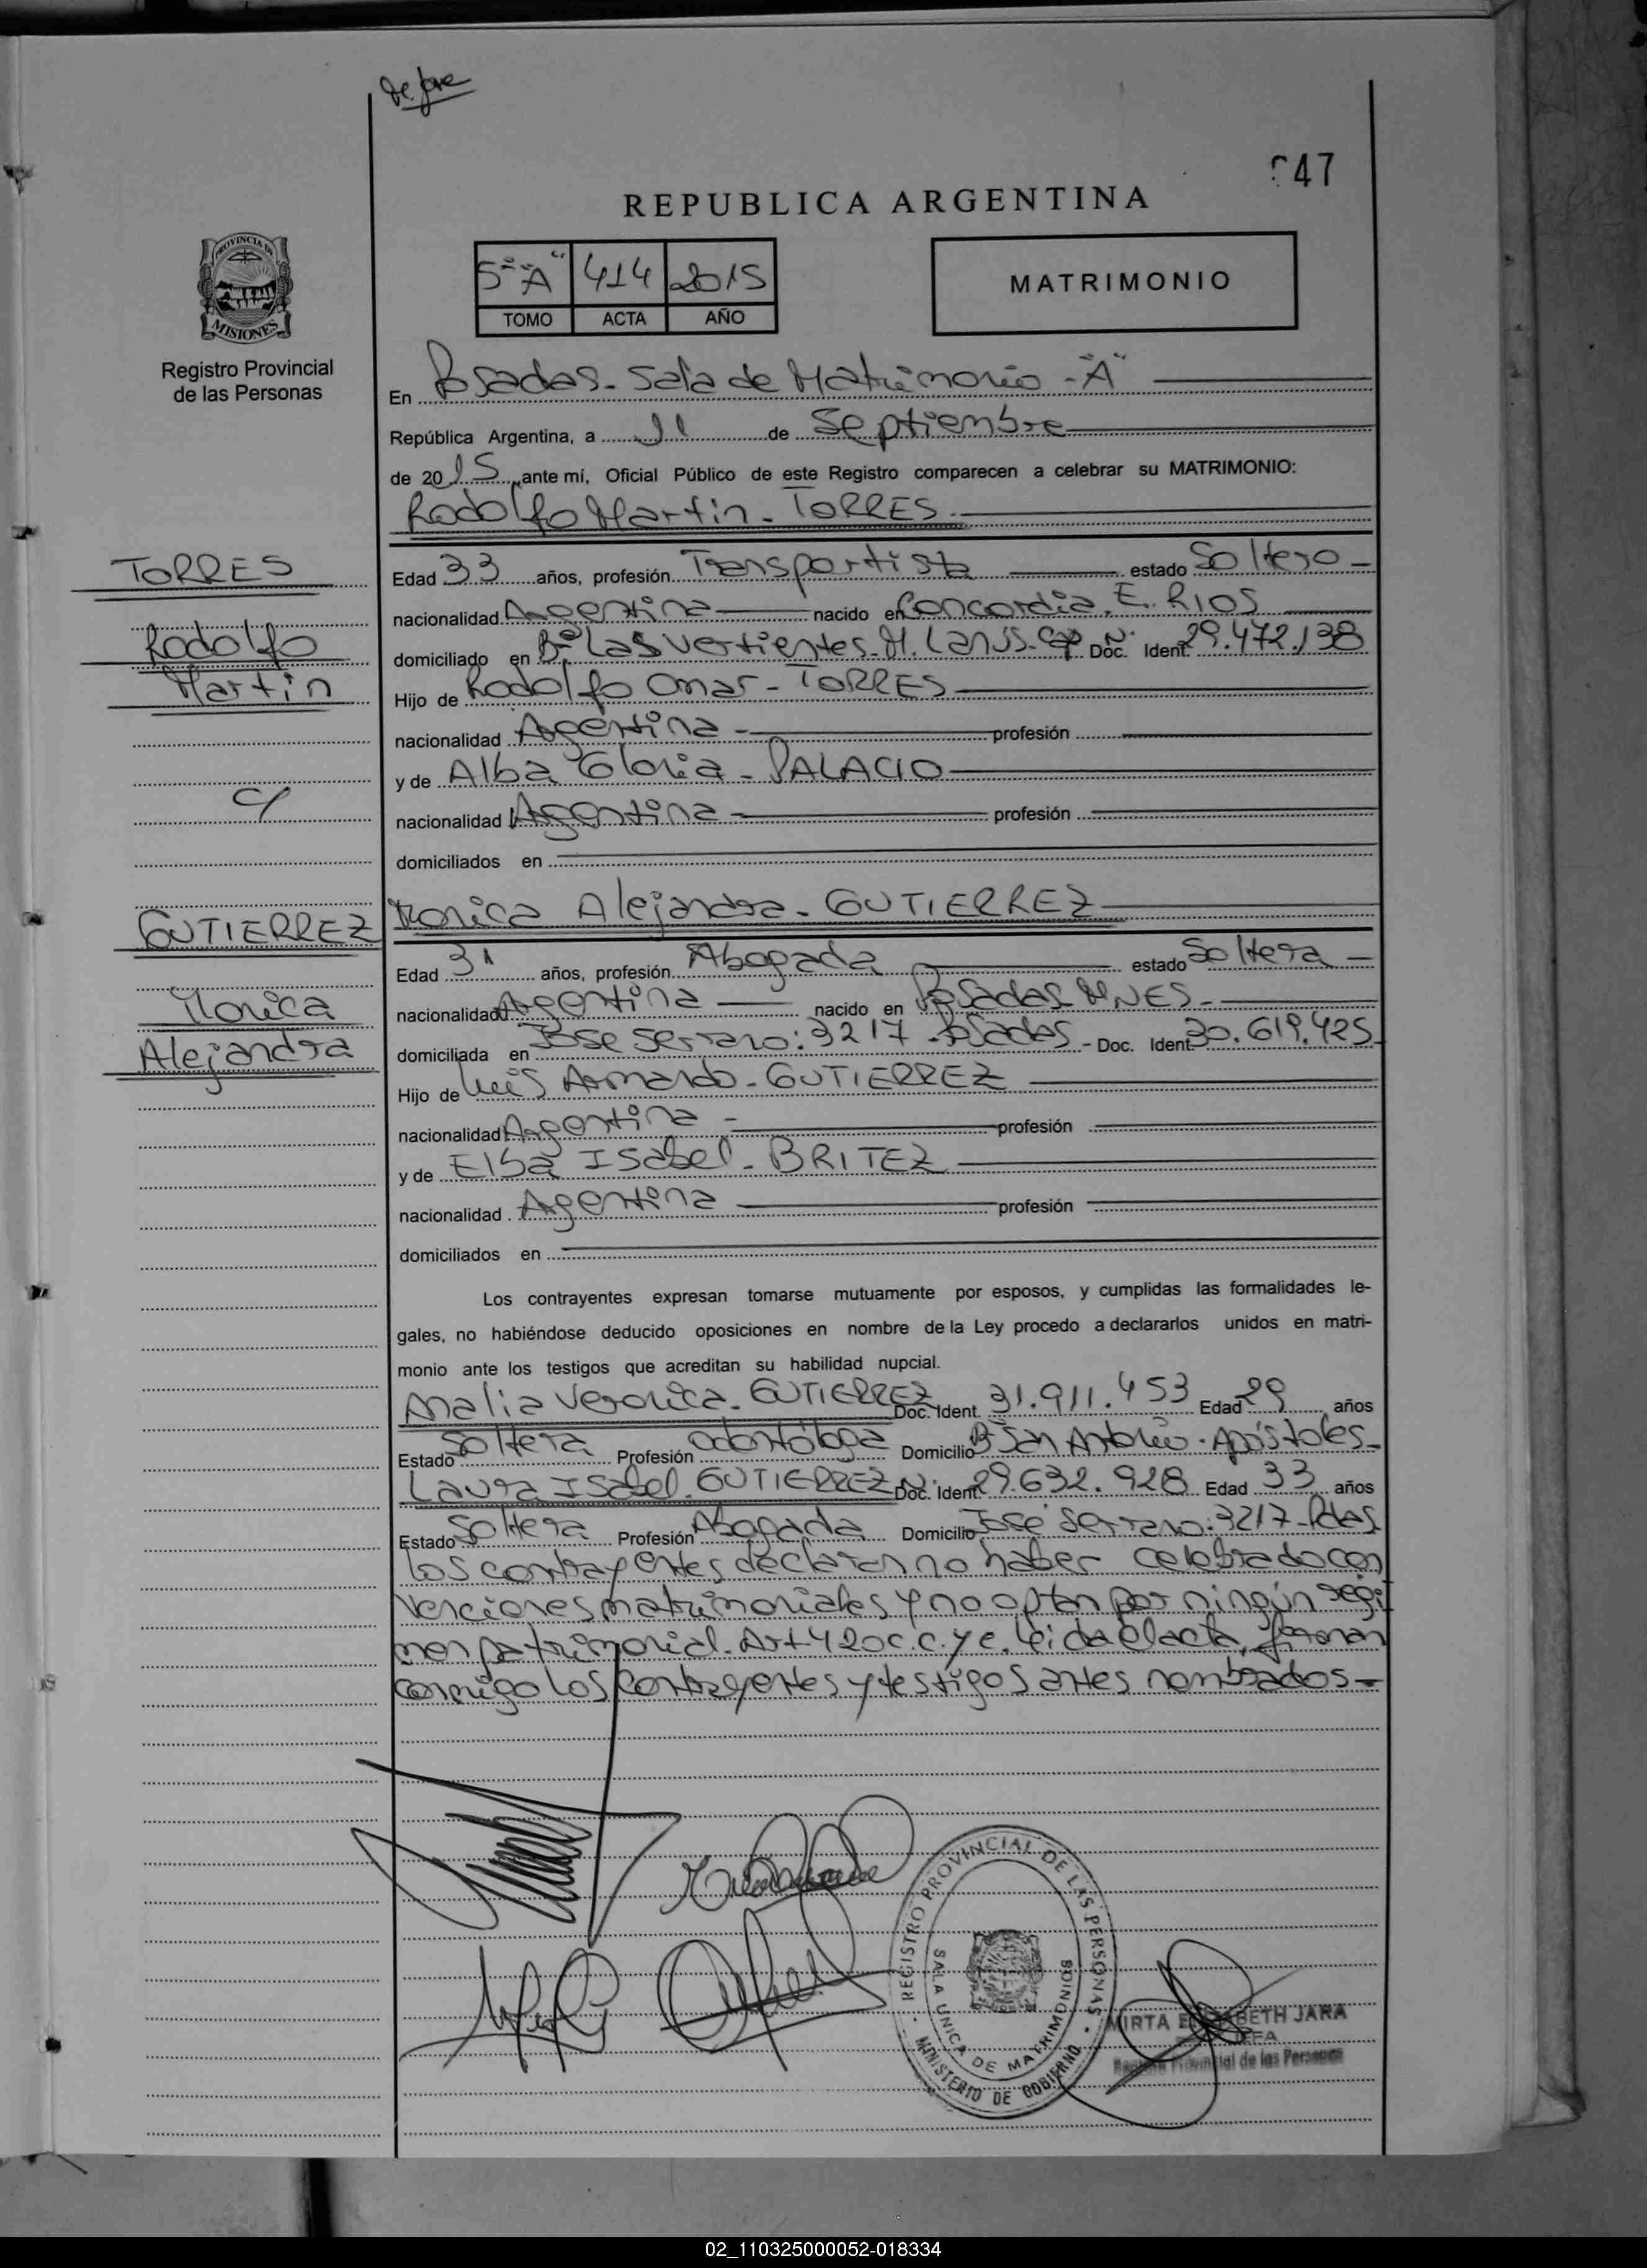 de fre
047
REPUBLICA ARGENTINA
5º "A" 414 2015
TOMO ACTA AÑO
MATRIMONIO
PROVINCIA DE
MISIONES
Registro Provincial
de las Personas
En Posadas - Sala de Matrimonio - "A"
República Argentina, a 11 de Septiembre
de 2015 ante mí, Oficial Público de este Registro comparecen a celebrar su MATRIMONIO:
Rodolfo Martin - TORRES
TORRES
Rodolfo
Martin
c/
GUTIERREZ
Monica
Alejandra
Edad 33 años, profesión Transportista estado Soltero -
nacionalidad Argentina nacido en Concordia, E. RIOS
domiciliado en Bº Las Vertientes - M. Lanús - Cap Doc. N: Ident. 29.472.138
Hijo de Rodolfo Omar - TORRES
nacionalidad Argentina - profesión
y de Alba Gloria - PALACIO
nacionalidad Argentina - profesión
domiciliados en
Monica Alejandra - GUTIERREZ
Edad 31 años, profesión Abogada estado Soltera -
nacionalidad Argentina nacido en Posadas MNES.-
domiciliada en José Serrano: 3217 - Posadas - Doc. Ident. 30.619.425
Hijo de Luis Armando - GUTIERREZ
nacionalidad Argentina - profesión
y de Elba Isabel - BRITEZ
nacionalidad Argentina profesión
domiciliados en
Los contrayentes expresan tomarse mutuamente por esposos, y cumplidas las formalidades le-
gales, no habiéndose deducido oposiciones en nombre de la Ley procedo a declararlos unidos en matri-
monio ante los testigos que acreditan su habilidad nupcial.
Analia Veronica - GUTIERREZ Doc. Ident. 31.911.453 Edad 29 años
Estado Soltera Profesión Odontóloga Domicilio Bº San Antonio - Apóstoles -
Laura Isabel - GUTIERREZ Doc. N: Ident. 29.632.928 Edad 33 años
Estado Soltera Profesión Abogada Domicilio José Serrano: 3217 - Pdas
los contrayentes declaran no haber celebrado con
venciones matrimoniales y no optan por ningún regi
men patrimonial. Art 420 c.c. y c. leida el acta, firman
conmigo los contrayentes y testigos antes nombrados -
REGISTRO PROVINCIAL DE LAS PERSONAS
SALA UNICA DE MATRIMONIOS
MINISTERIO DE GOBIERNO
MIRTA ELIZABETH JARA
JEFA
Registro Provincial de las Personas
02_110325000052-018334